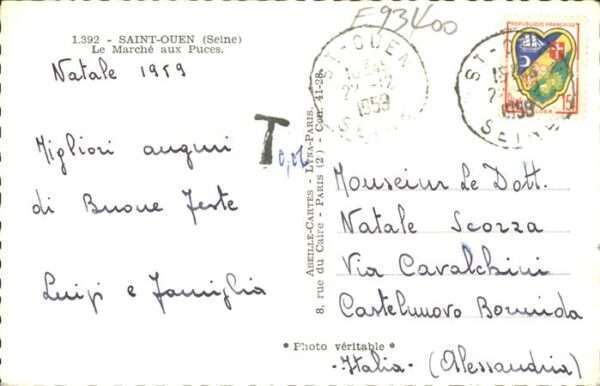 F 93400
1.392 - SAINT-OUEN (Seine)
Le Marché aux Puces.
Natale 1959
Migliori auguri
di Buone Feste
Luigi e Famiglia
T
ABEILLE-CARTES - LYNA-PARIS.
8, rue du Caire - PARIS (2) - Con. 41-28.
* Photo véritable *
ST-OUEN
1959
SEINE
ST-OUEN
1959
SEINE
RÉPUBLIQUE FRANÇAISE
15F
Monseiur Le Dott.
Natale Scozza
Via Cavalchini
Castelnuovo Bormida
-Italia- (Alessandria)